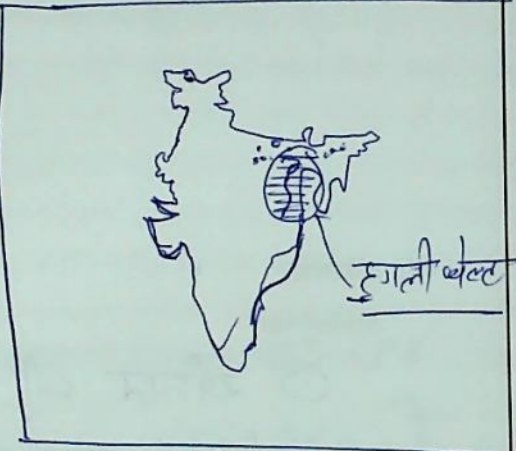 हुगली बेल्ट